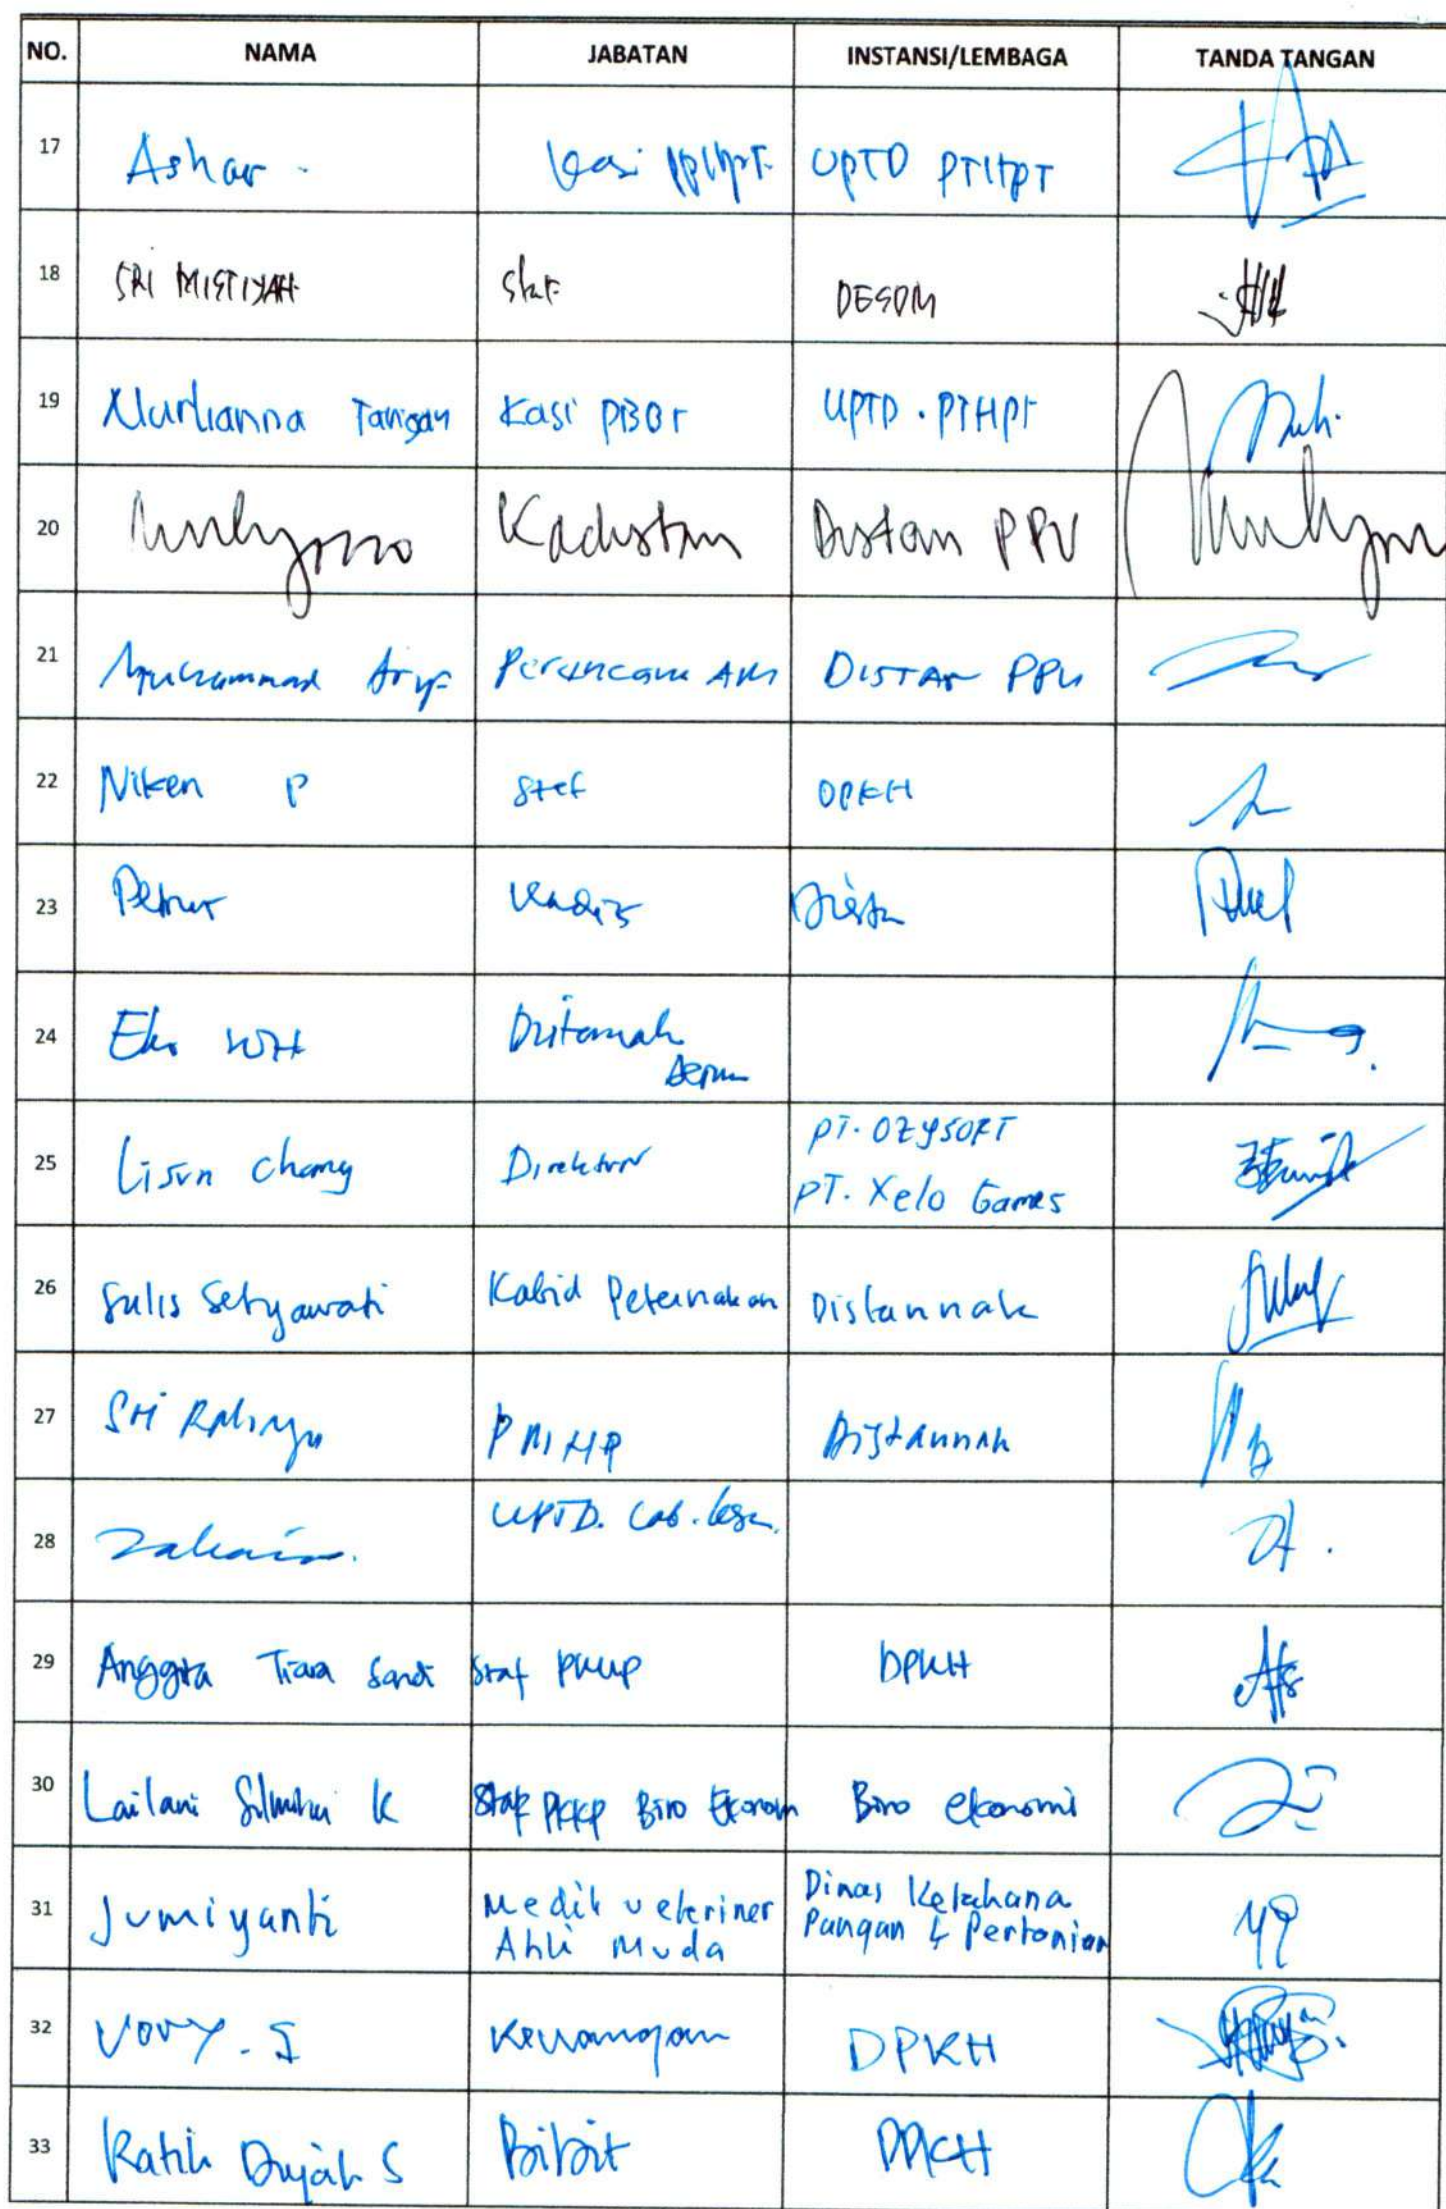 NO. NAMA JABATAN INSTANSI/LEMBAGA TANDA TANGAN
17 Ashar. Kasi UPTD PTHPT
18 SRI MISTIYAH Staf DESDM
19 Nurlianna Tarigan Kasi PBBT UPTD. PTHPT
20 Mulyono Kadistan Distan PPU
21 Muhammad Arif Perencana Ahli DISTAN PPU
22 Niken P Staf DPKH
23 Petrus Kadis
24 Eko WH
25 Lisun Chang Direktur PT. OZYSOFT
PT. Xelo Games
26 Sulis Setyawati Kabid Peternakan Distannak
27 Sri Rahayu PMHP Distannak
28 UPTD. Lab.
29 Anggra Tiara Sandi Staf DPKH
30 Lailani K Staf PKKP Biro Ekonom Biro ekonomi
31 Jumiyanti Medik veteriner Dinas Ketahana
Ahli Muda Pangan & Pertanian
32 VOVY. S Keuangan DPKH
33 Ratih S Bibit DPKH